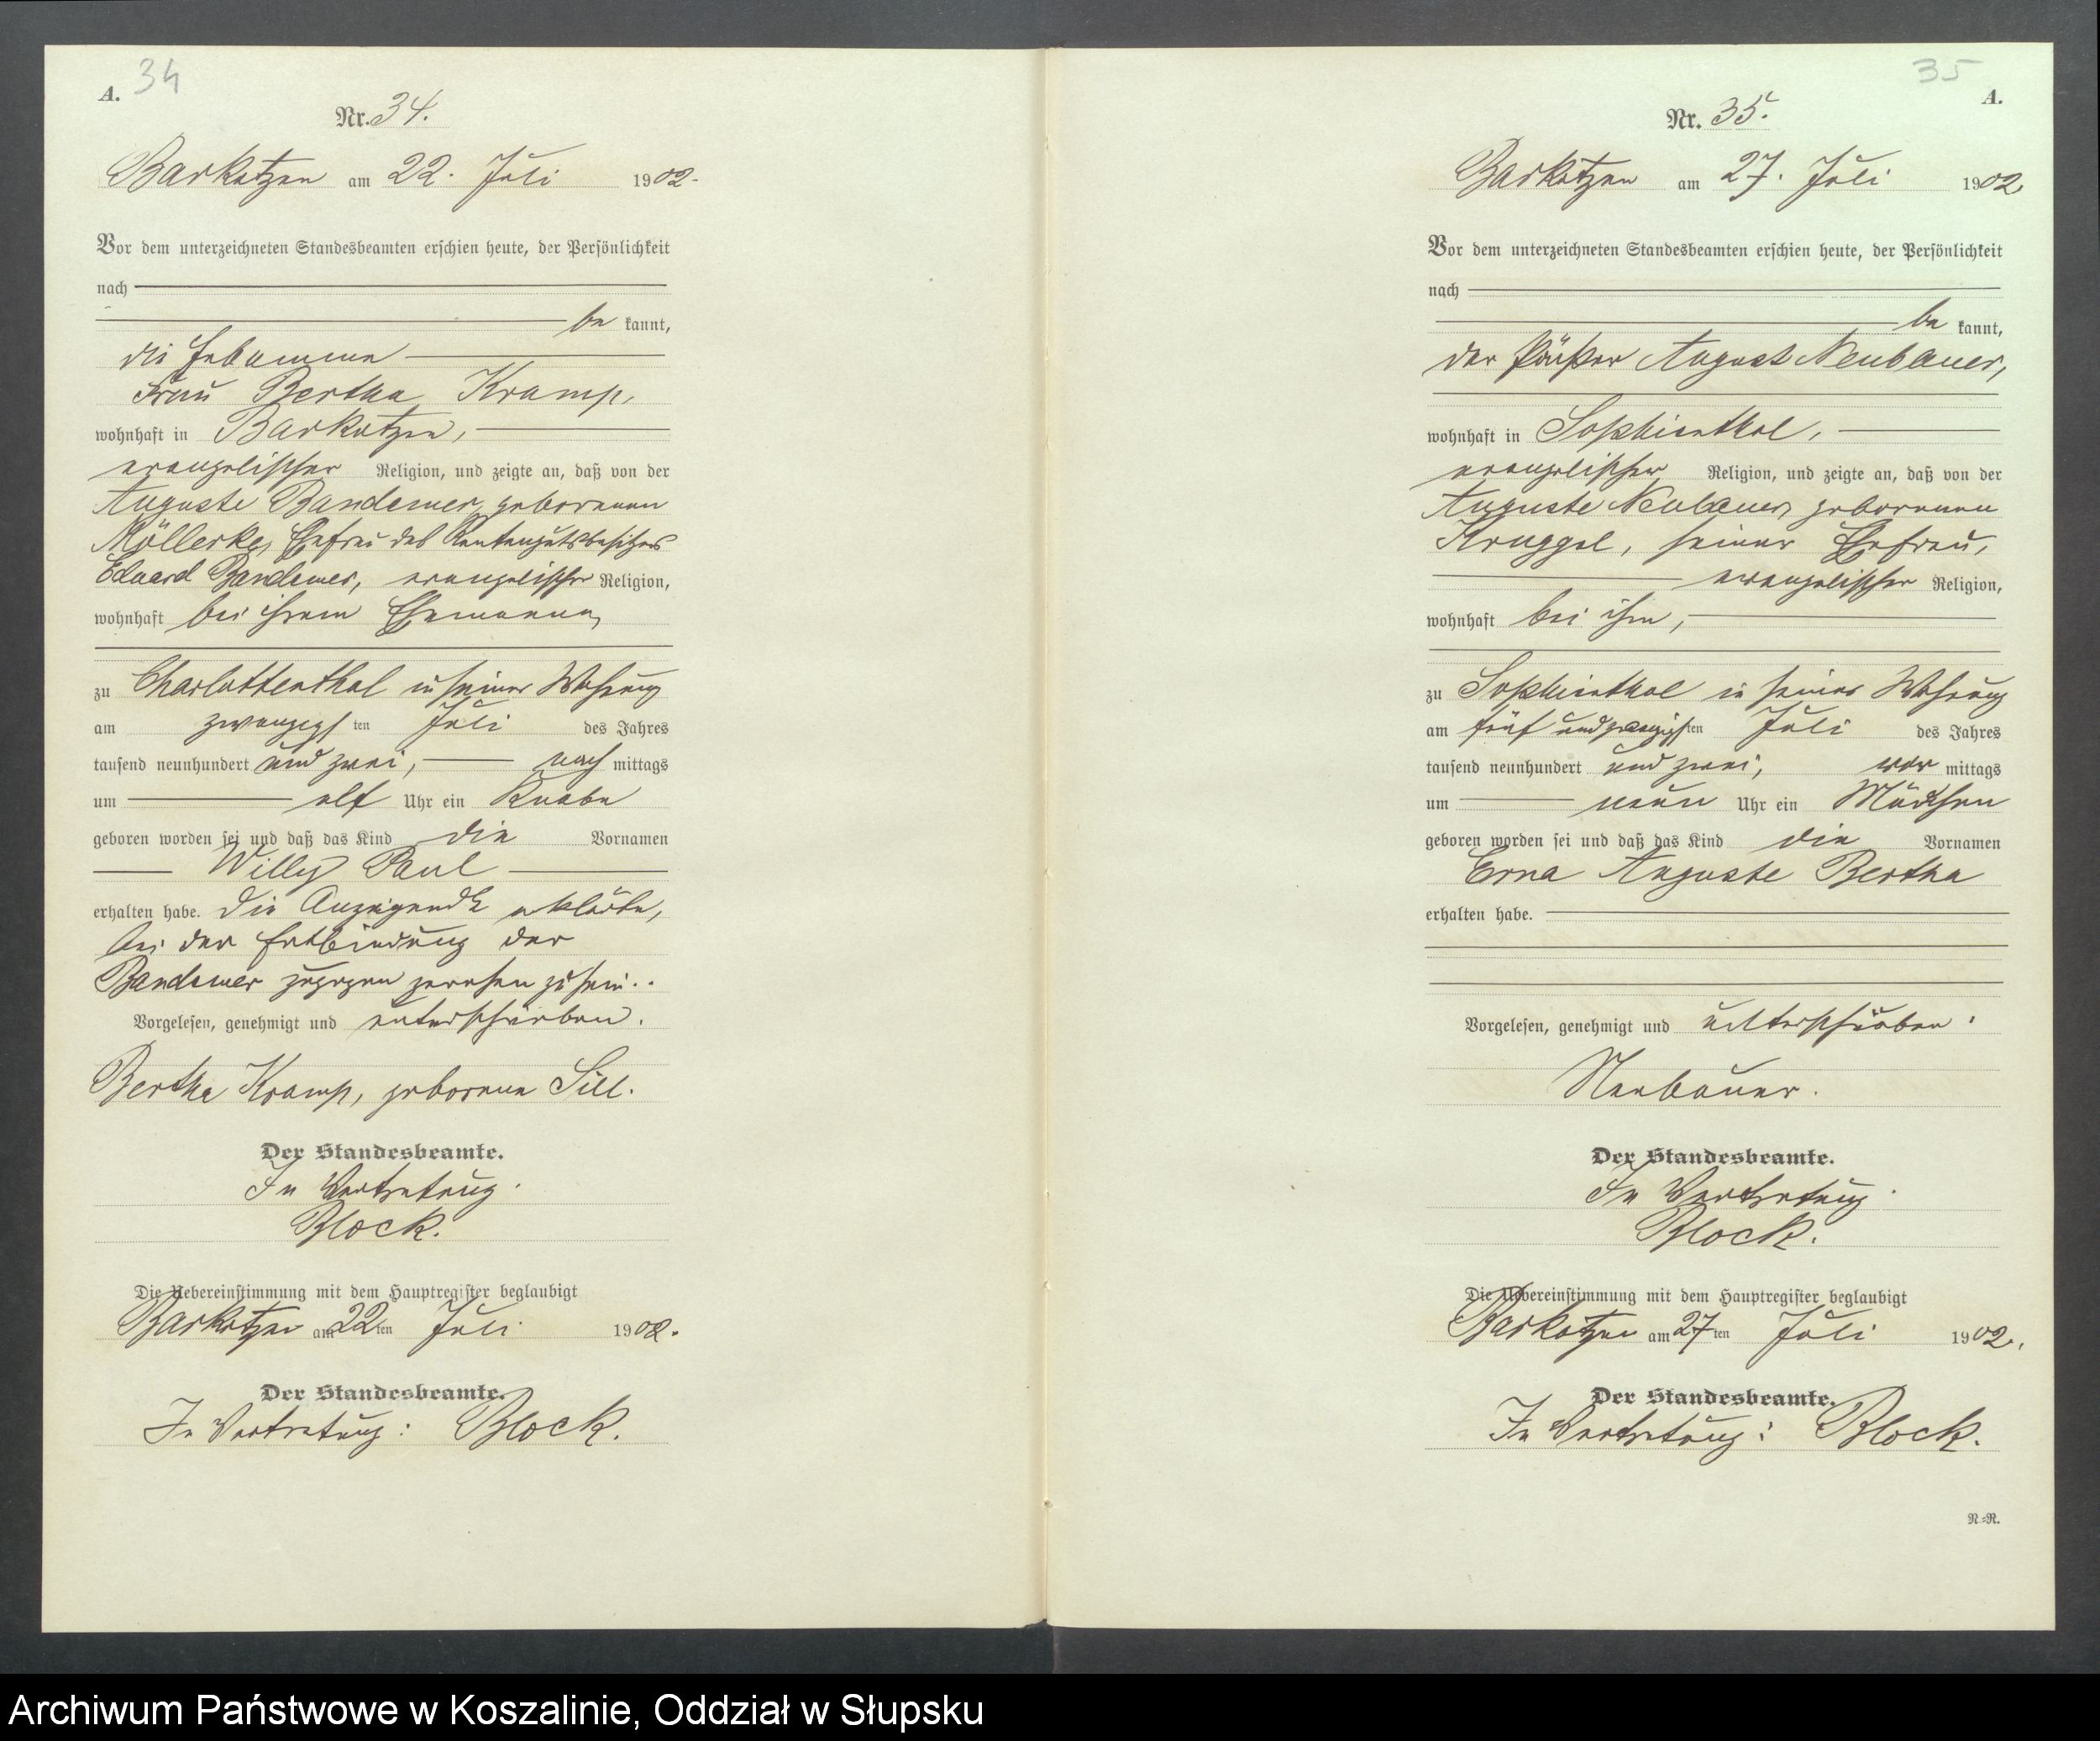 34
A.
Nr. 34.
Barkotzen am 22. Juli 1902.
Vor dem unterzeichneten Standesbeamten erschien heute, der Persönlichkeit
nach
be kannt,
die Hebamme
Frau Bertha Kramp,
wohnhaft in Barkotzen,
evangelischer Religion, und zeigte an, daß von der
Auguste Bandemer, geborenen
Möllerke, Ehefrau des Rentengutsbesitzers
Eduard Bandemer, evangelischer Religion,
wohnhaft bei ihrem Ehemann,
zu Charlottenthal in seiner Wohnung
am zwanzigsten Juli des Jahres
tausend neunhundert und zwei, nach mittags
um elf Uhr ein Knabe
geboren worden sei und daß das Kind die Vornamen
Willy Paul
erhalten habe. Die Anzeigende erklärte,
bei der Entbindung der
Bandemer zugegen gewesen zu sein.
Vorgelesen, genehmigt und unterschrieben.
Bertha Kramp, geborene Sill.
Der Standesbeamte.
In Vertretung.
Block.
Die Uebereinstimmung mit dem Hauptregister beglaubigt
Barkotzen am 22ten Juli 1902.
Der Standesbeamte.
In Vertretung: Block.
35
A.
Nr. 35.
Barkotzen am 27. Juli 1902.
Vor dem unterzeichneten Standesbeamten erschien heute, der Persönlichkeit
nach
be kannt,
der August Neubauer,
wohnhaft in Sophienthal,
evangelischer Religion, und zeigte an, daß von der
Auguste Neubauer, geborenen
Kruggel, seiner Ehefrau,
evangelischer Religion,
wohnhaft bei ihm,
zu Sophienthal in seiner Wohnung
am fünf und zwanzigsten Juli des Jahres
tausend neunhundert und zwei, vor mittags
um neun Uhr ein Mädchen
geboren worden sei und daß das Kind die Vornamen
Erna Auguste Bertha
erhalten habe.
Vorgelesen, genehmigt und unterschrieben.
Neubauer.
Der Standesbeamte.
In Vertretung.
Block.
Die Uebereinstimmung mit dem Hauptregister beglaubigt
Barkotzen am 27ten Juli 1902.
Der Standesbeamte.
In Vertretung: Block.
N=R.
Archiwum Państwowe w Koszalinie, Oddział w Słupsku